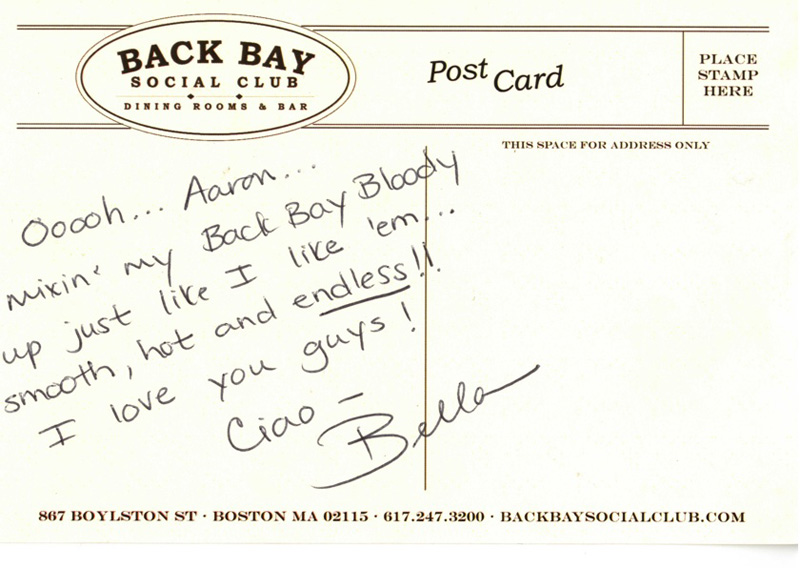 BACK BAY
SOCIAL CLUB
DINING ROOMS & BAR
Post Card
PLACE
STAMP
HERE
THIS SPACE FOR ADDRESS ONLY
Ooooh... Aaron...
mixin' my Back Bay Bloody
up just like I like 'em...
smooth, hot and endless!!
I love you guys!
Ciao –
Bella
867 BOYLSTON ST · BOSTON MA 02115 · 617.247.3200 · BACKBAYSOCIALCLUB.COM